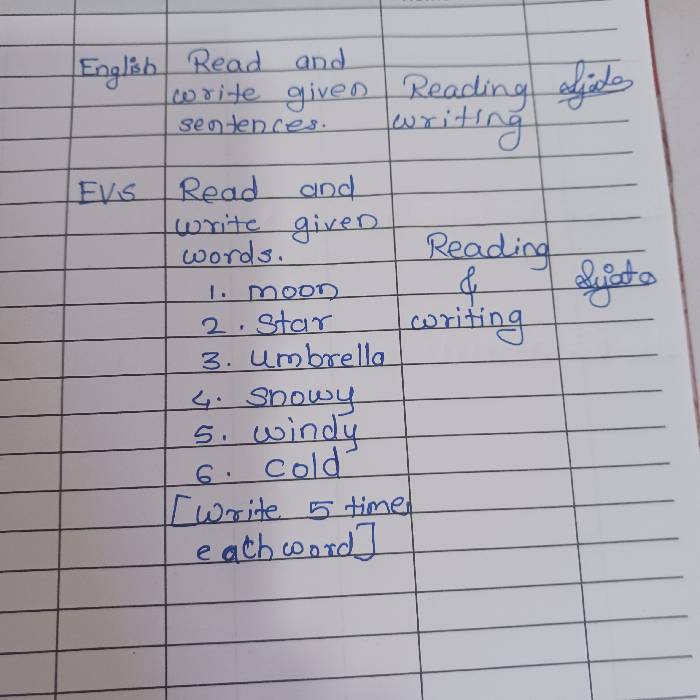 English Read and
write given Reading
sentences. writing
EVS Read and
write given
words. Reading
1. moon &
2. Star writing
3. umbrella
4. snowy
5. windy
6. cold
[Write 5 time
each word]